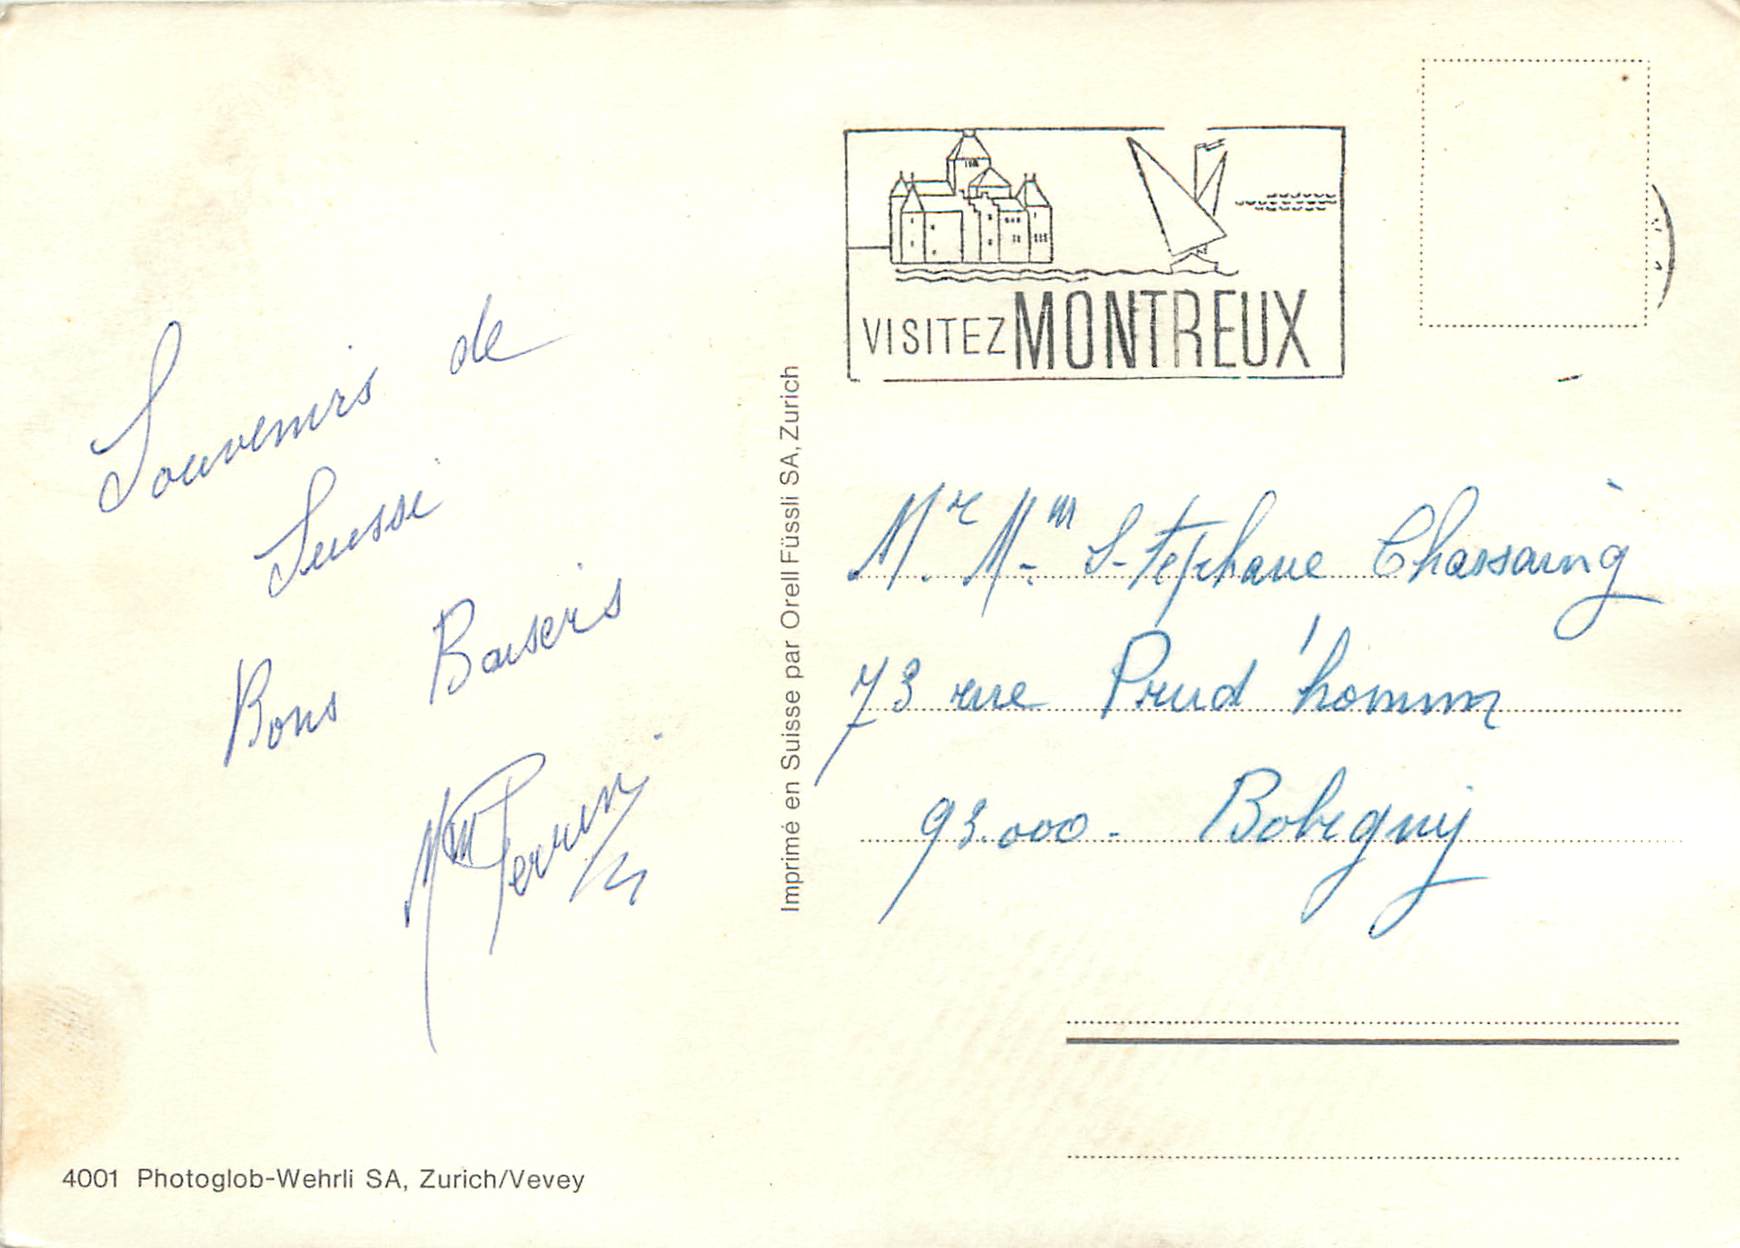 Souvenirs de
Suisse
Bons Baisers
Mm Perrin
VISITEZ MONTREUX
Imprimé en Suisse par Orell Füssli SA, Zurich
Mr Mm Stéphane Chassaing
73 rue Prud'homm
93.000. Bobigny
4001 Photoglob-Wehrli SA, Zurich/Vevey